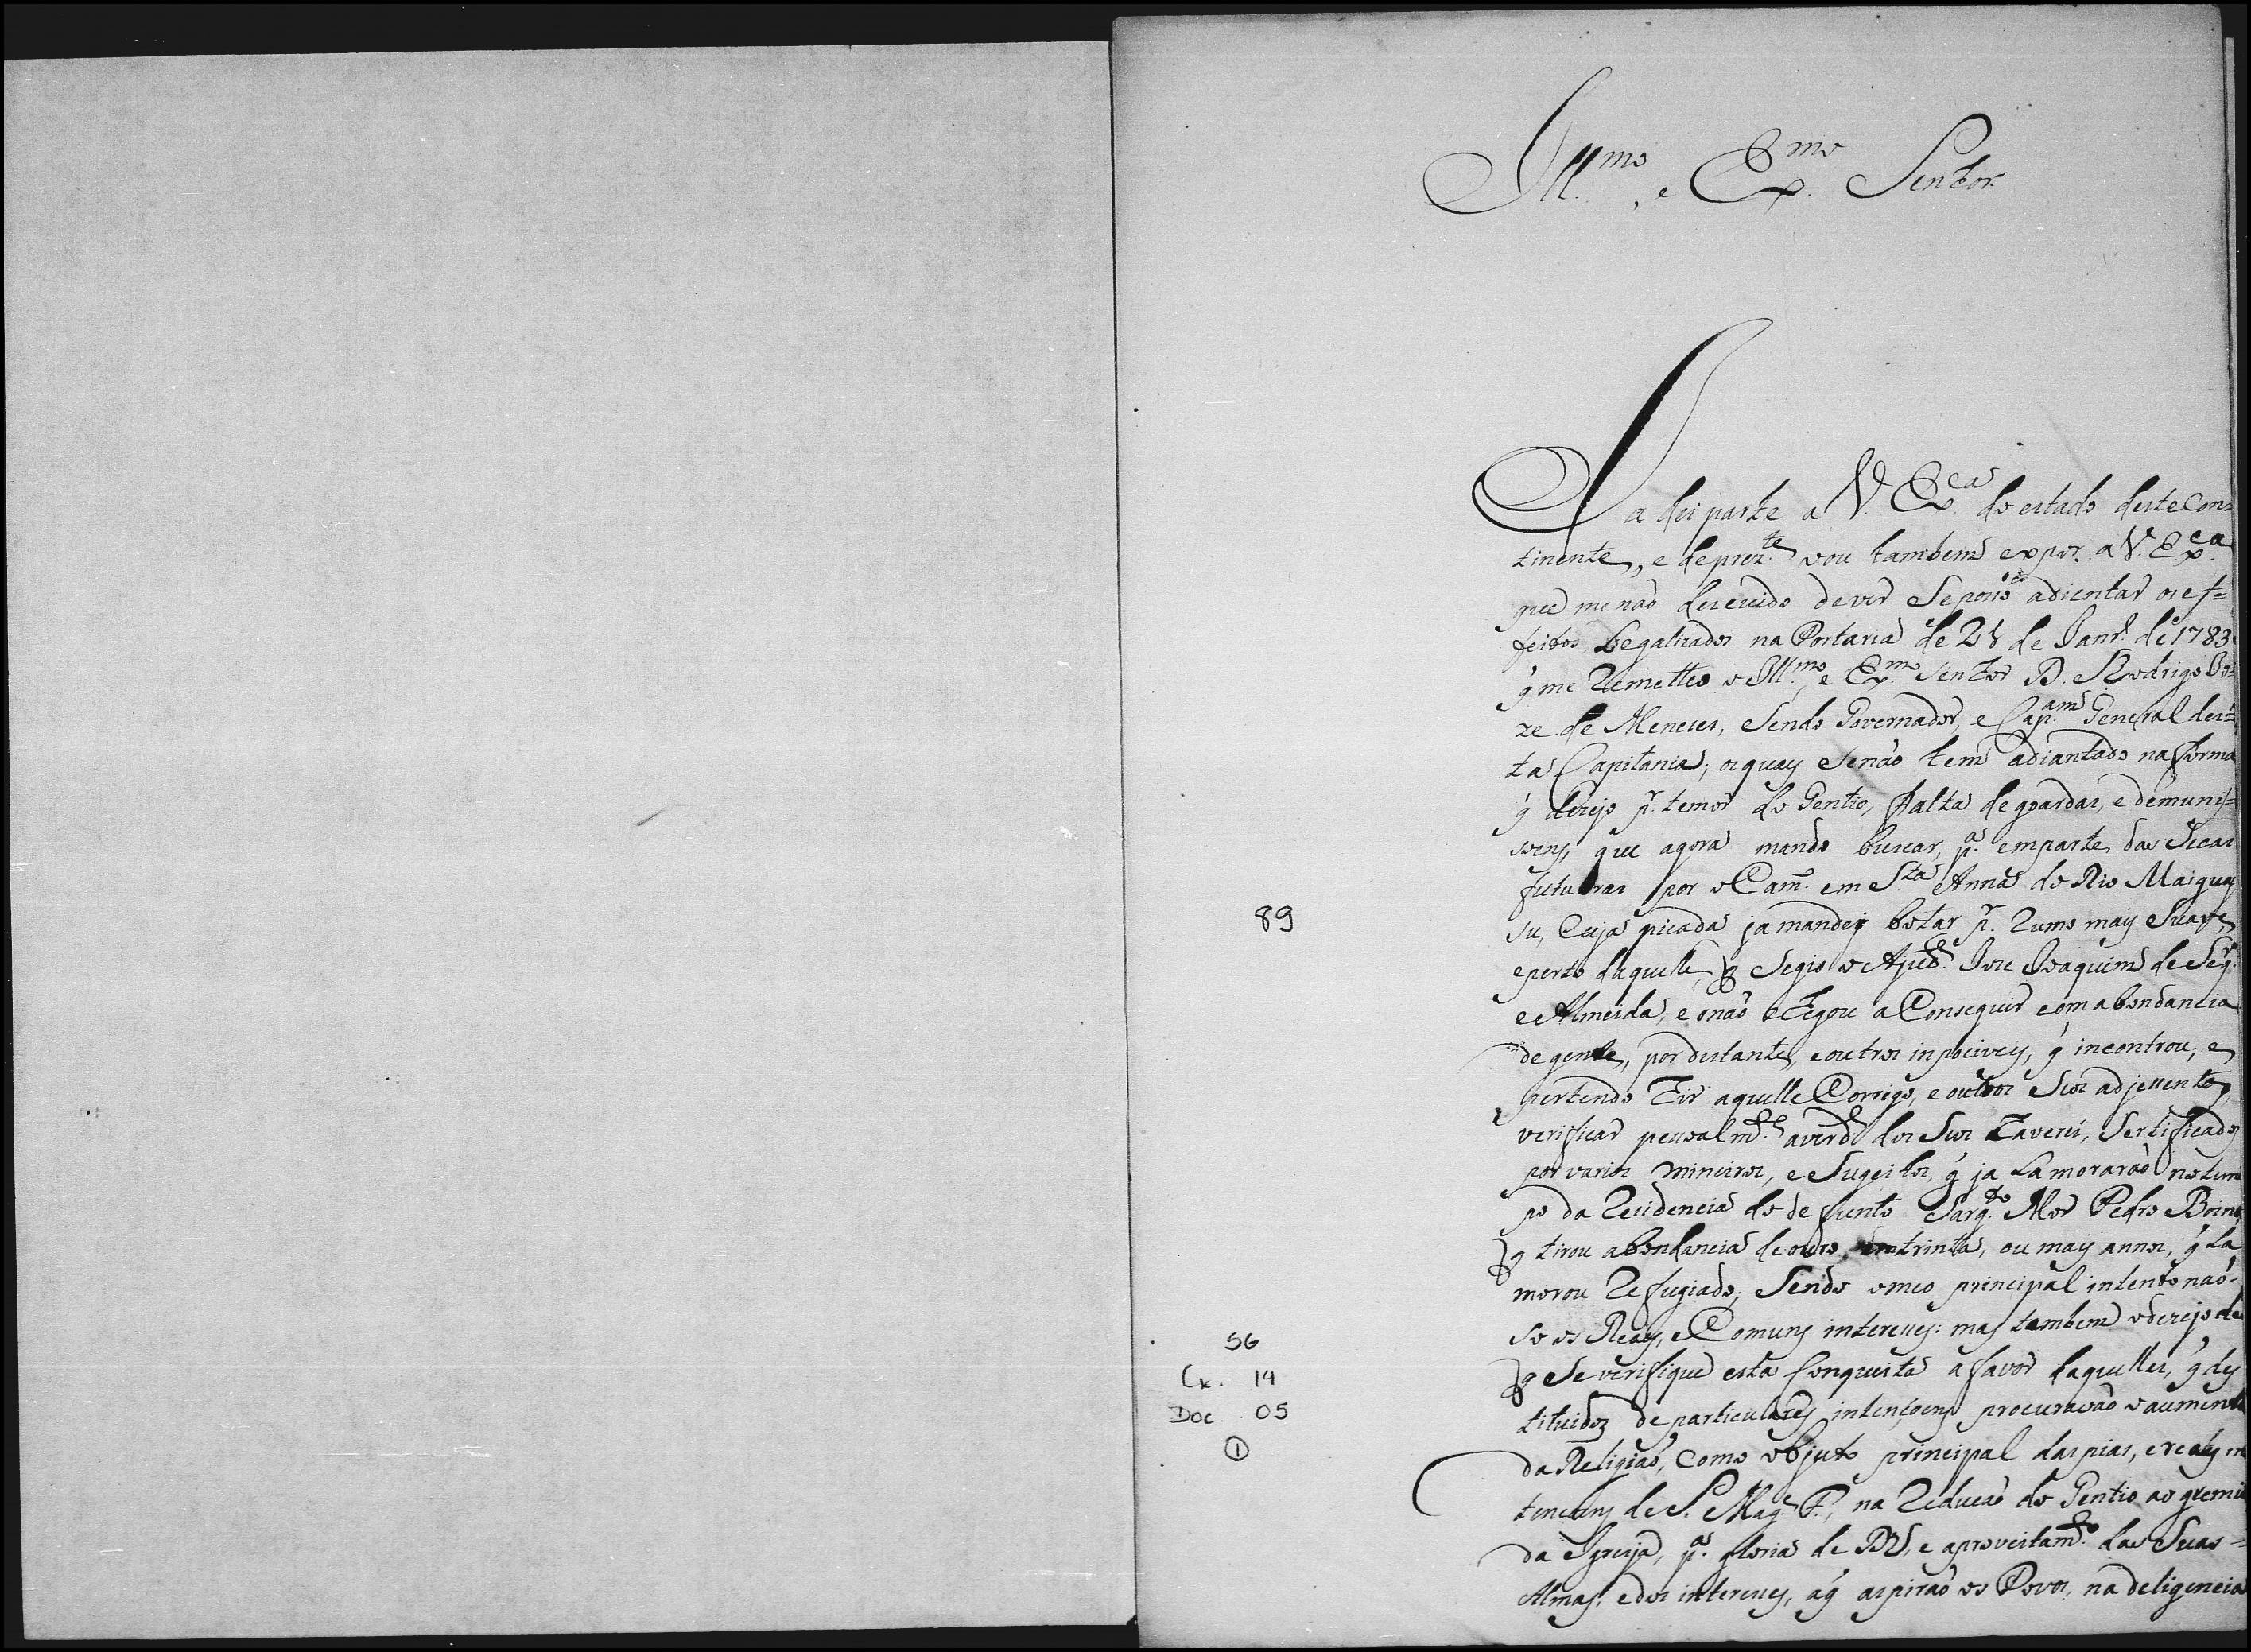 Ill.mo, e Ex.mo Senhor
Ja dei parte a V. Ex.ca do estado deste Con=
tinente, e deprez.te vou tambem expor a V. Ex.ca
que me não descuido de ver Se posso adientar os ef=
feitos Legalizados na Portaria de 28 de Janr.o de 1783
q̃ me Remetteo o Ill.mo, e Ex.mo Senhor D. Rodrigo Jo=
ze de Menezes, Sendo Governador, e Cap.am General des=
ta Capitania; os quays Senão tem adiantado na forma
q̃ dezejo p.r temor do Gentio, falta de goardas, e de muni=
soens, que agora mando buscar, p.a em parte das Secas
futuras por o Cam.o em S.ta Anna do Rio Maiguas
su, Cuja picada ja mandey botar p.r Rumo mays Suave,
e perto daquelle, q̃ Segio o Ajud.e Joze Joaquim de Seq.ra
e Almeida, e o não chegou a Conseguir com abondancia
de gente, por distante, e outros inpociveys, q̃ incontrou; e
pertendo hir aquelle Corrego, e outros Seos adjessentes,
verificar pessoalm.te averd.e dos Seos haveres, Sertificados
por varios mineiros, e Sugeitos, q̃ ja Lá morarão no tem
po da Rezidencia do defunto Sarg.to Mor Pedro
q̃ tirou abondancia de ouro, em trinta, ou mays annos, q̃ Lá
morou Refugiado; Sendo o meo principal intento não
So os Reays, e Comuns interesses: mas tambem o dezejo de
q̃ Se verifique esta Conquista a favor daquelles, q̃ des
tituidos de particulares intençoens procuravão o aumento
da Religião, como objecto principal das pias, e reays in
tencoens de S. Mag.e F., na Reducão do Gentio ao gremio
da Igreija, p.a gloria de Ds, e aproveitam.to das Suas=
Almas, e dos interesses, aq̃ aspirão os Povos, na deligencia
89
56
Cx. 14
Doc 05
1